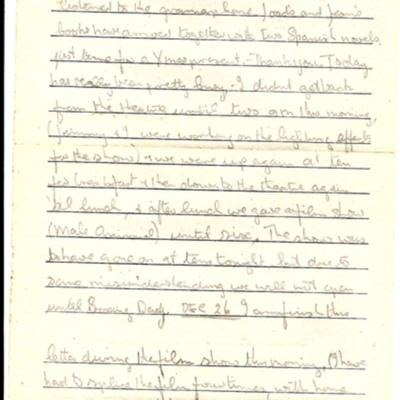 listened to the programme home. Dads and Jean's
books have arrived together with two Spanish novels
just time for a Xmas present. - Thank you. Today
has really been pretty busy - I didnt get back
from the theatre until two a.m this morning,
(Jimmy & I were working on the lighting effects
for the show) & we were up again at ten
for breakfast & then down to the theatre again
till lunch, & after lunch we gave a film show
(Male Animal) until six. The show was
to have gone on at ten tonight but due to
some misunderstanding we will not open
until Boxing Day. DEC 26 I am finish this
letter during the film show this morning, I have
had to splice the film four times, with home